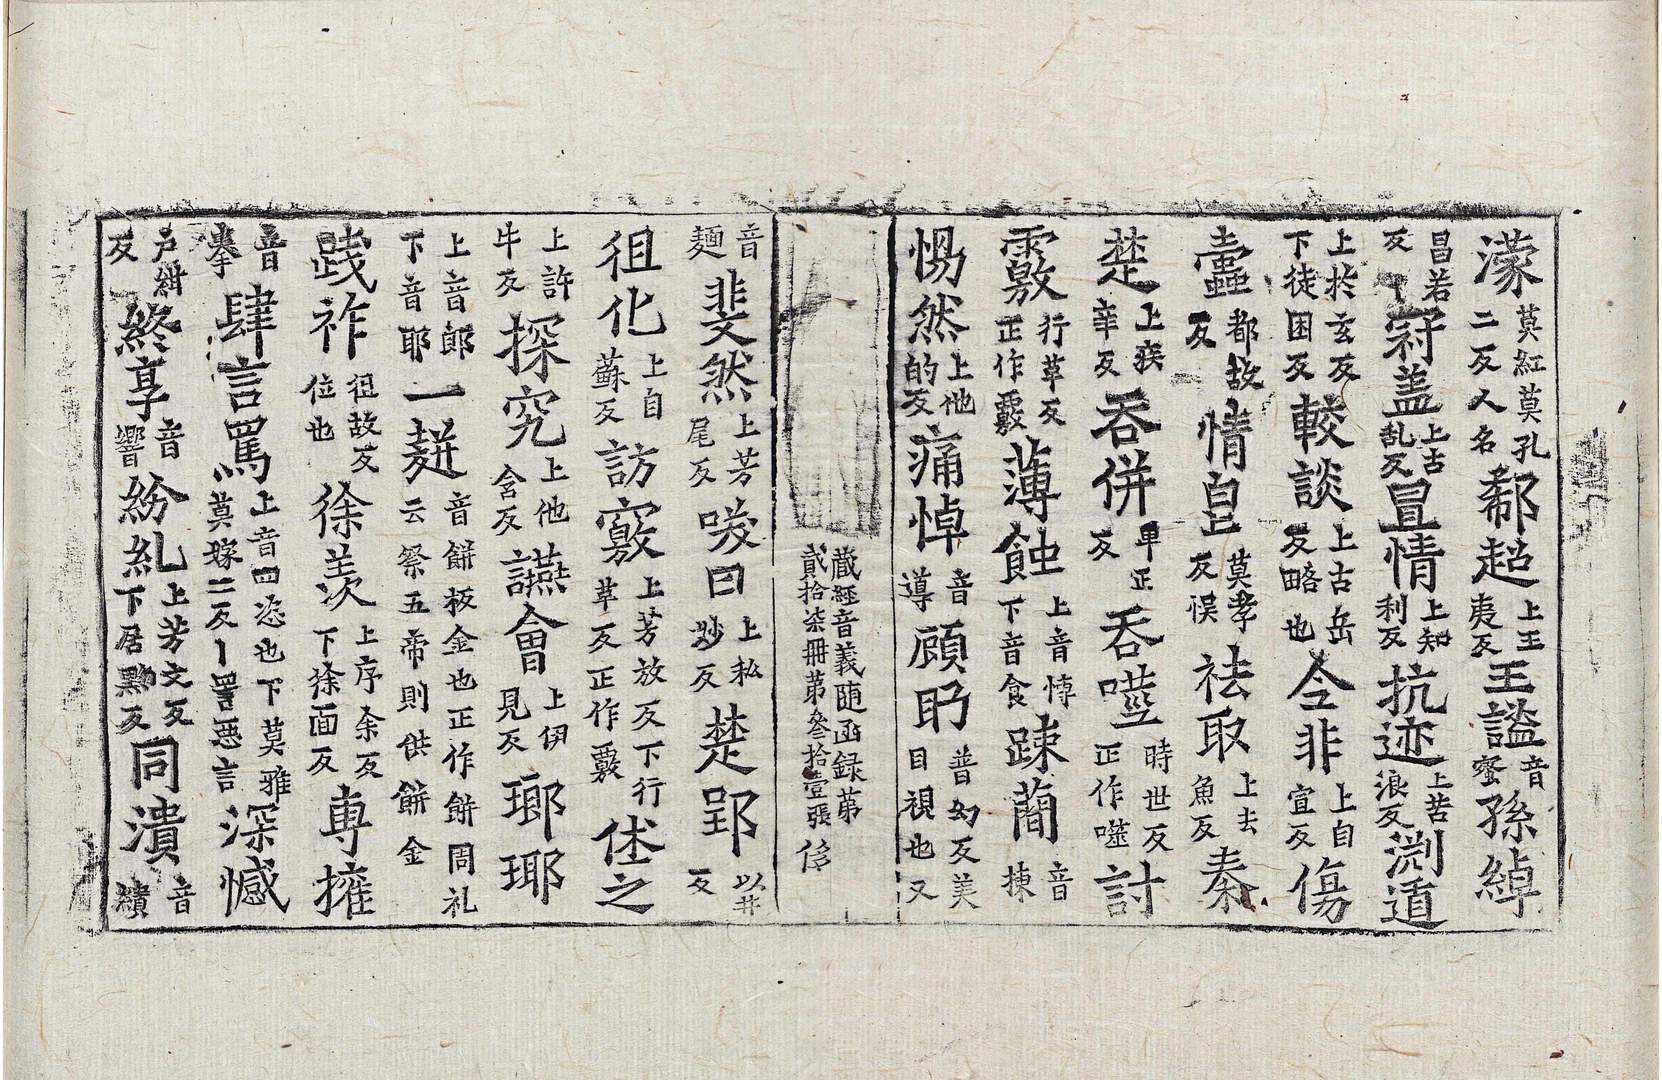 濛莫紅莫孔二反人名郗超上王夷反王謐音蜜孫綽
昌若反冠盖上古乱反冒情上知利反抗迹上苦浪反渕遒
上扵玄反下徒困反較談上古岳反略也令非上自宣反傷
蠹都故反情皃莫孝反悮祛取上去魚反秦
楚上疾辛反吞併畢正反吞噬時世反正作噬討
覈行草反正作覈薄蝕上音愽下音食踈蕑音揀
惕然上他的反痛悼音導顧眄普幻反美目視也又
藏經音義随函録苐貳拾柒冊苐叄拾壹張
音麺斐然上芳尾反唆曰上私妙反楚郢以井反
徂化上自蘇反訪覈上芳放反下行草反正作覈伏之
上許牛反探究上他含反讌會上伊見反瑯瑘
上音郎下音耶一䴵音餅板金也正作鉼周礼云祭五帝則供鉼金
践祚徂故反位也徐羡上序余反下徐面反專擁
音拳肆言罵上音四恣也下莫雅莫嫁二反丨詈惡言深憾
户紺反終享音響紛糺上芳文反下居黝反同潰音繢